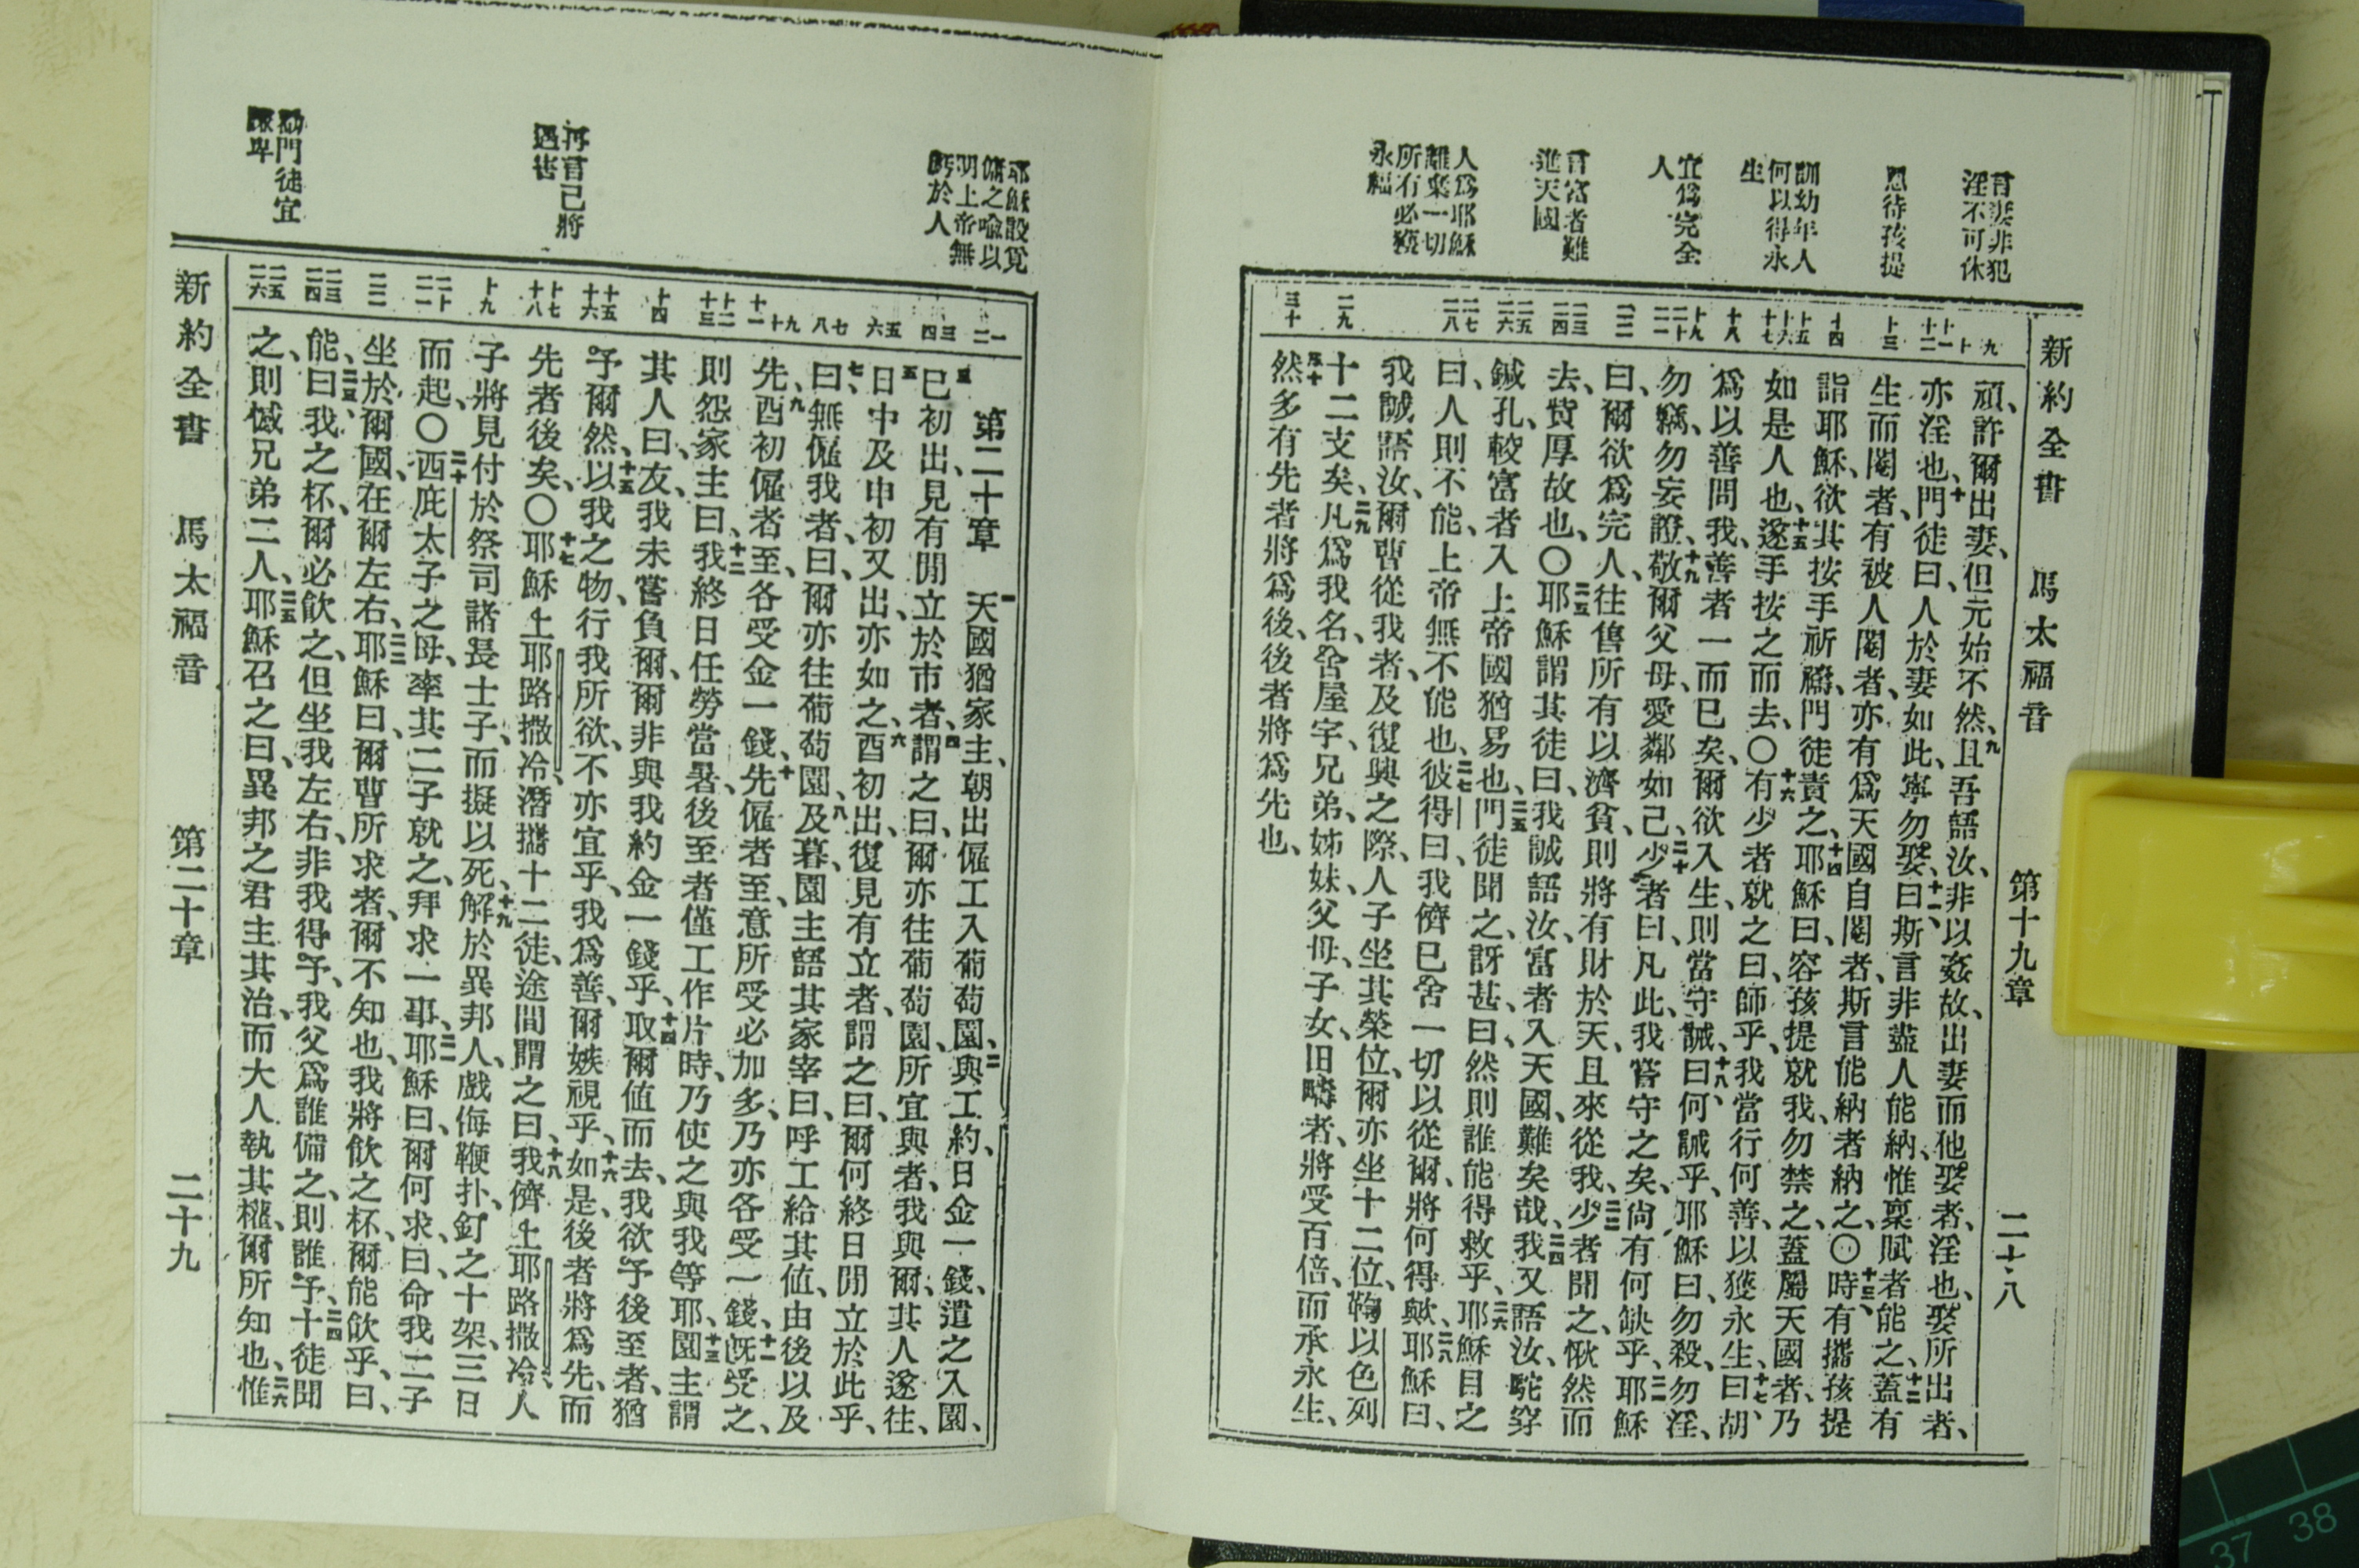 新約全書 馬太福音 第十九章 二十八
言棄非犯
淫不可休
恩待孩提
訓幼年人
何以得永
生
宜爲完全
人
言富者難
進天國
人爲耶穌
離棄一切
所有必獲
永福
九
十
十一
十二
十三
十四
十五
十六
十七
十八
十九
二十
二一
二二
二三
二四
二五
二六
二七
二八
二九
三十
頑、許爾出妻、但元始不然、九且吾語汝、非以姦故、出妻而他娶者、淫也、娶所出者、
亦淫也、十門徒曰、人於妻如此、寧勿娶、十一曰、斯言非盡人能納、惟稟賦者能之、十二蓋有
生而閹者、有被人閹者、亦有爲天國自閹者、斯言能納者納之、〇十三時、有攜孩提
詣耶穌、欲其按手祈禱、門徒責之、十四耶穌曰、容孩提就我、勿禁之、蓋屬天國者、乃
如是人也、十五遂手按之而去、〇十六有少者就之曰、師乎、我當行何善、以獲永生、十七曰、胡
爲以善問我、善者一而已矣、爾欲入生、則當守誡、十八曰、何誡乎、耶穌曰、勿殺、勿淫、
勿竊、勿妄證、十九敬爾父母、愛鄰如己、二十少者曰、凡此、我嘗守之矣、尚有何缺乎、二一耶穌
曰、爾欲爲完人、往售所有以濟貧、則將有財於天、且來從我、二二少者聞之、愀然而
去、貲厚故也、〇二三耶穌謂其徒曰、我誠語汝、富者入天國、難矣哉、二四我又語汝、駝穿
鍼孔、較富者入上帝國猶易也、二五門徒聞之、訝甚、曰、然則誰能得救乎、二六耶穌目之
曰、人則不能、上帝無不能也、二七彼得曰、我儕已舍一切以從爾、將何得歟、二八耶穌曰、
我誠語汝、爾曹從我者、及復興之際、人子坐其榮位、爾亦坐十二位、鞫以色列
十二支矣、二九凡爲我名、舍屋宇、兄弟、姊妹、父母、子女、田疇者、將受百倍、而承永生、
三十然多有先者將爲後、後者將爲先也、
耶穌設覓
傭之喩以
明上帝無
虧於人
再言己將
遇害
勸門徒宜
謙卑
一
二
三
四
五
六
七
八
九
十
十一
十二
十三
十四
十五
十六
十七
十八
十九
二十
二一
二二
二三
二四
二五
二六
第二十章 一天國猶家主、朝出傭工入葡萄園、二與工約、日金一錢、遣之入園、
三巳初出、見有閒立於市者、四謂之曰、爾亦往葡萄園、所宜與者、我與爾、其人遂往、
五日中及申初又出、亦如之、六酉初出、復見有立者、謂之曰、爾何終日閒立於此乎、
七曰、無傭我者、曰、爾亦往葡萄園、八及暮、園主語其家宰曰、呼工給其値、由後以及
先、九酉初傭者至、各受金一錢、十先傭者至、意所受必加多、乃亦各受一錢、十一旣受之、
則怨家主曰、十二我終日任勞當暑、後至者僅工作片時、乃使之與我等耶、十三園主謂
其人曰、友、我未嘗負爾、爾非與我約金一錢乎、十四取爾値而去、我欲予後至者、猶
予爾然、十五以我之物、行我所欲、不亦宜乎、我爲善、爾嫉視乎、十六如是後者將爲先、而
先者後矣、〇十七耶穌上耶路撒冷、潛攜十二徒、途間謂之曰、十八我儕上耶路撒冷、人
子將見付於祭司諸長士子、而擬以死、十九解於異邦人、戲侮鞭扑、釘之十架、三日
而起、〇二十西庇太子之母、率其二子就之、拜求一事、二一耶穌曰、爾何求、曰、命我二子
坐於爾國、在爾左右、二二耶穌曰、爾曹所求者、爾不知也、我將飮之杯、爾能飮乎、曰、
能、二三曰、我之杯、爾必飮之、但坐我左右、非我得予、我父爲誰備之、則誰予、二四十徒聞
之、則憾兄弟二人、二五耶穌召之曰、異邦之君主其治、而大人執其權、爾所知也、二六惟
新約全書 馬太福音 第二十章 二十九
37 38